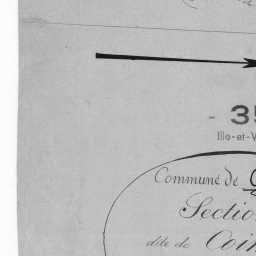 - 35
Ille-et-V
Commune de
Section
dite de Coin